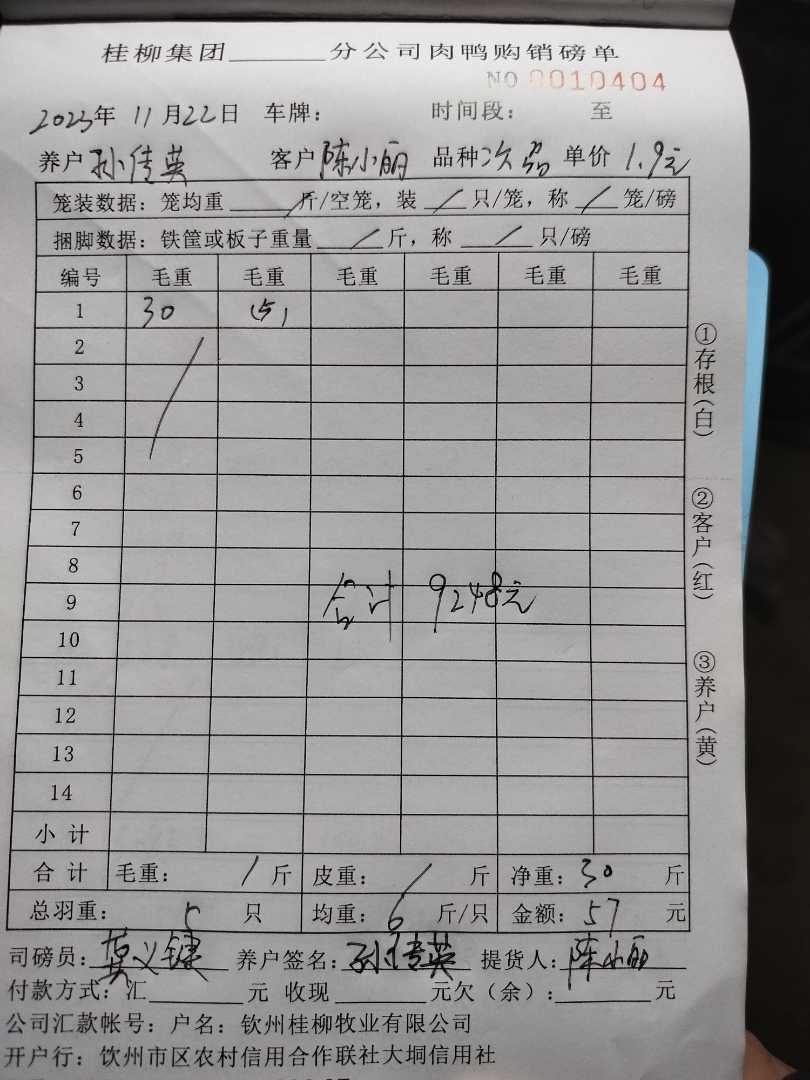 桂柳集团______分公司肉鸭购销磅单
NO 0010404
2023年 11月22日 车牌: 时间段: 至
养户 孙佳英 客户 陈小丽 品种 次 单价 1.9元
笼装数据: 笼均重 ___/斤/空笼, 装 _/_ 只/笼, 称 _/_ 笼/磅
捆脚数据: 铁筐或板子重量 _/_ 斤, 称 _/_ 只/磅
编号 毛重 毛重 毛重 毛重 毛重 毛重
1 30 (5)
2
3
4
5
6
7
8
合计 9248元
9
10
11
12
13
14
小 计
合 计 毛重: / 斤 皮重: / 斤 净重: 30 斤
总羽重: 5 只 均重: 6 斤/只 金额: 57 元
司磅员: 莫义键 养户签名: 孙佳英 提货人: 陈小丽
付款方式: 汇______元 收现______元欠(余):______元
公司汇款帐号: 户名: 钦州桂柳牧业有限公司
开户行: 钦州市区农村信用合作联社大垌信用社
①存根(白)
②客户(红)
③养户(黄)